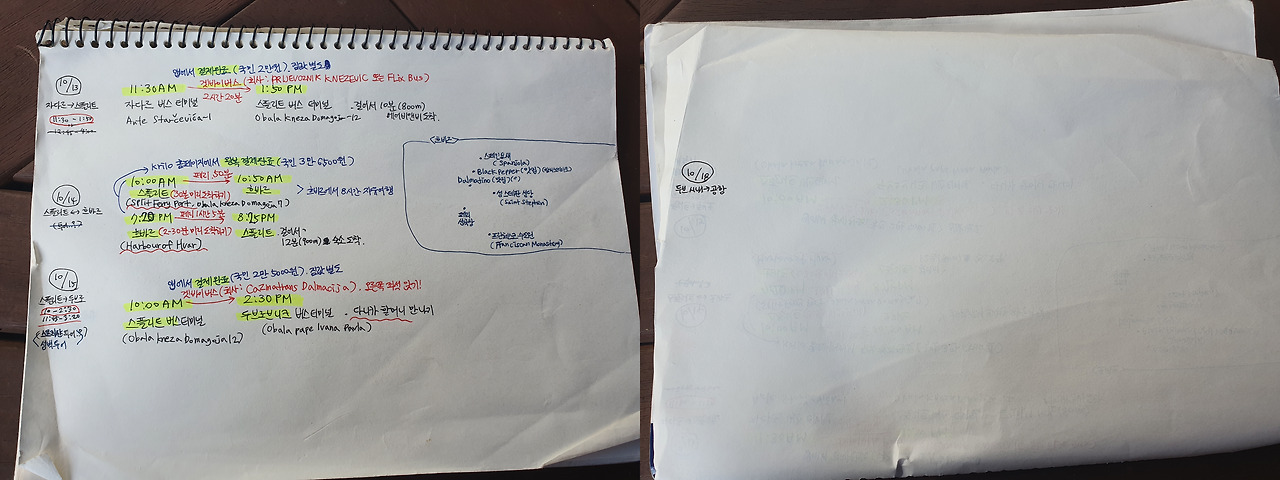 10/13
자다르→스플리트
11:30-1:50
앱에서 결제완료 (국민 2만원). 짐값 별도
겟바이버스 (회사: PRIJEVOZNIK KNEZEVIC 또는 Flix Bus)
11:30AM → 1:50 PM
2시간 20분
자다르 버스 터미널 스플리트 버스 터미널 . 걸어서 10분 (800m)
Ante Starčevića-1 Obala Kneza Domagoja-12 에어비앤비 도착.
10/14
스플리트↔흐바르
krilo 홈페이지에서 왕복 결제완료 (국민 3만 6500원)
페리 50분
10:00AM → 10:50AM
스플리트 (30분 미리 도착하기) 흐바르 > 흐바르에서 8시간 자유여행
(Split Ferry Port. Obala Kneza Domagoja 7)
페리 1시간 5분
8:25PM
흐바르 (2-30분 미리 도착하기) 스플리트. 걸어서
(Harbour of Hvar) 12분 (900m) 숙소 도착.
<흐바르>
• 스페인요새
(Spanjola)
• Black Pepper (맛집)
• 성 스테판 성당
(Saint Stephen)
• 프란체스코 수도원
(Franciscan Monastery)
10/15
스플리트→두브
10-2:30
앱에서 결제완료 (국민 2만 5000원). 짐값 별도
겟바이버스 (회사: Cazmatrans Dalmacija). 오른쪽 좌석 앉기!
10:00AM → 2:30 PM
스플리트 버스터미널 두브로브니크 버스터미널 . 다니카 할머니 만나기
(Obala Kneza Domagoja 12) (Obala pape Ivana Pavla)
10/18
두브 시내→공항